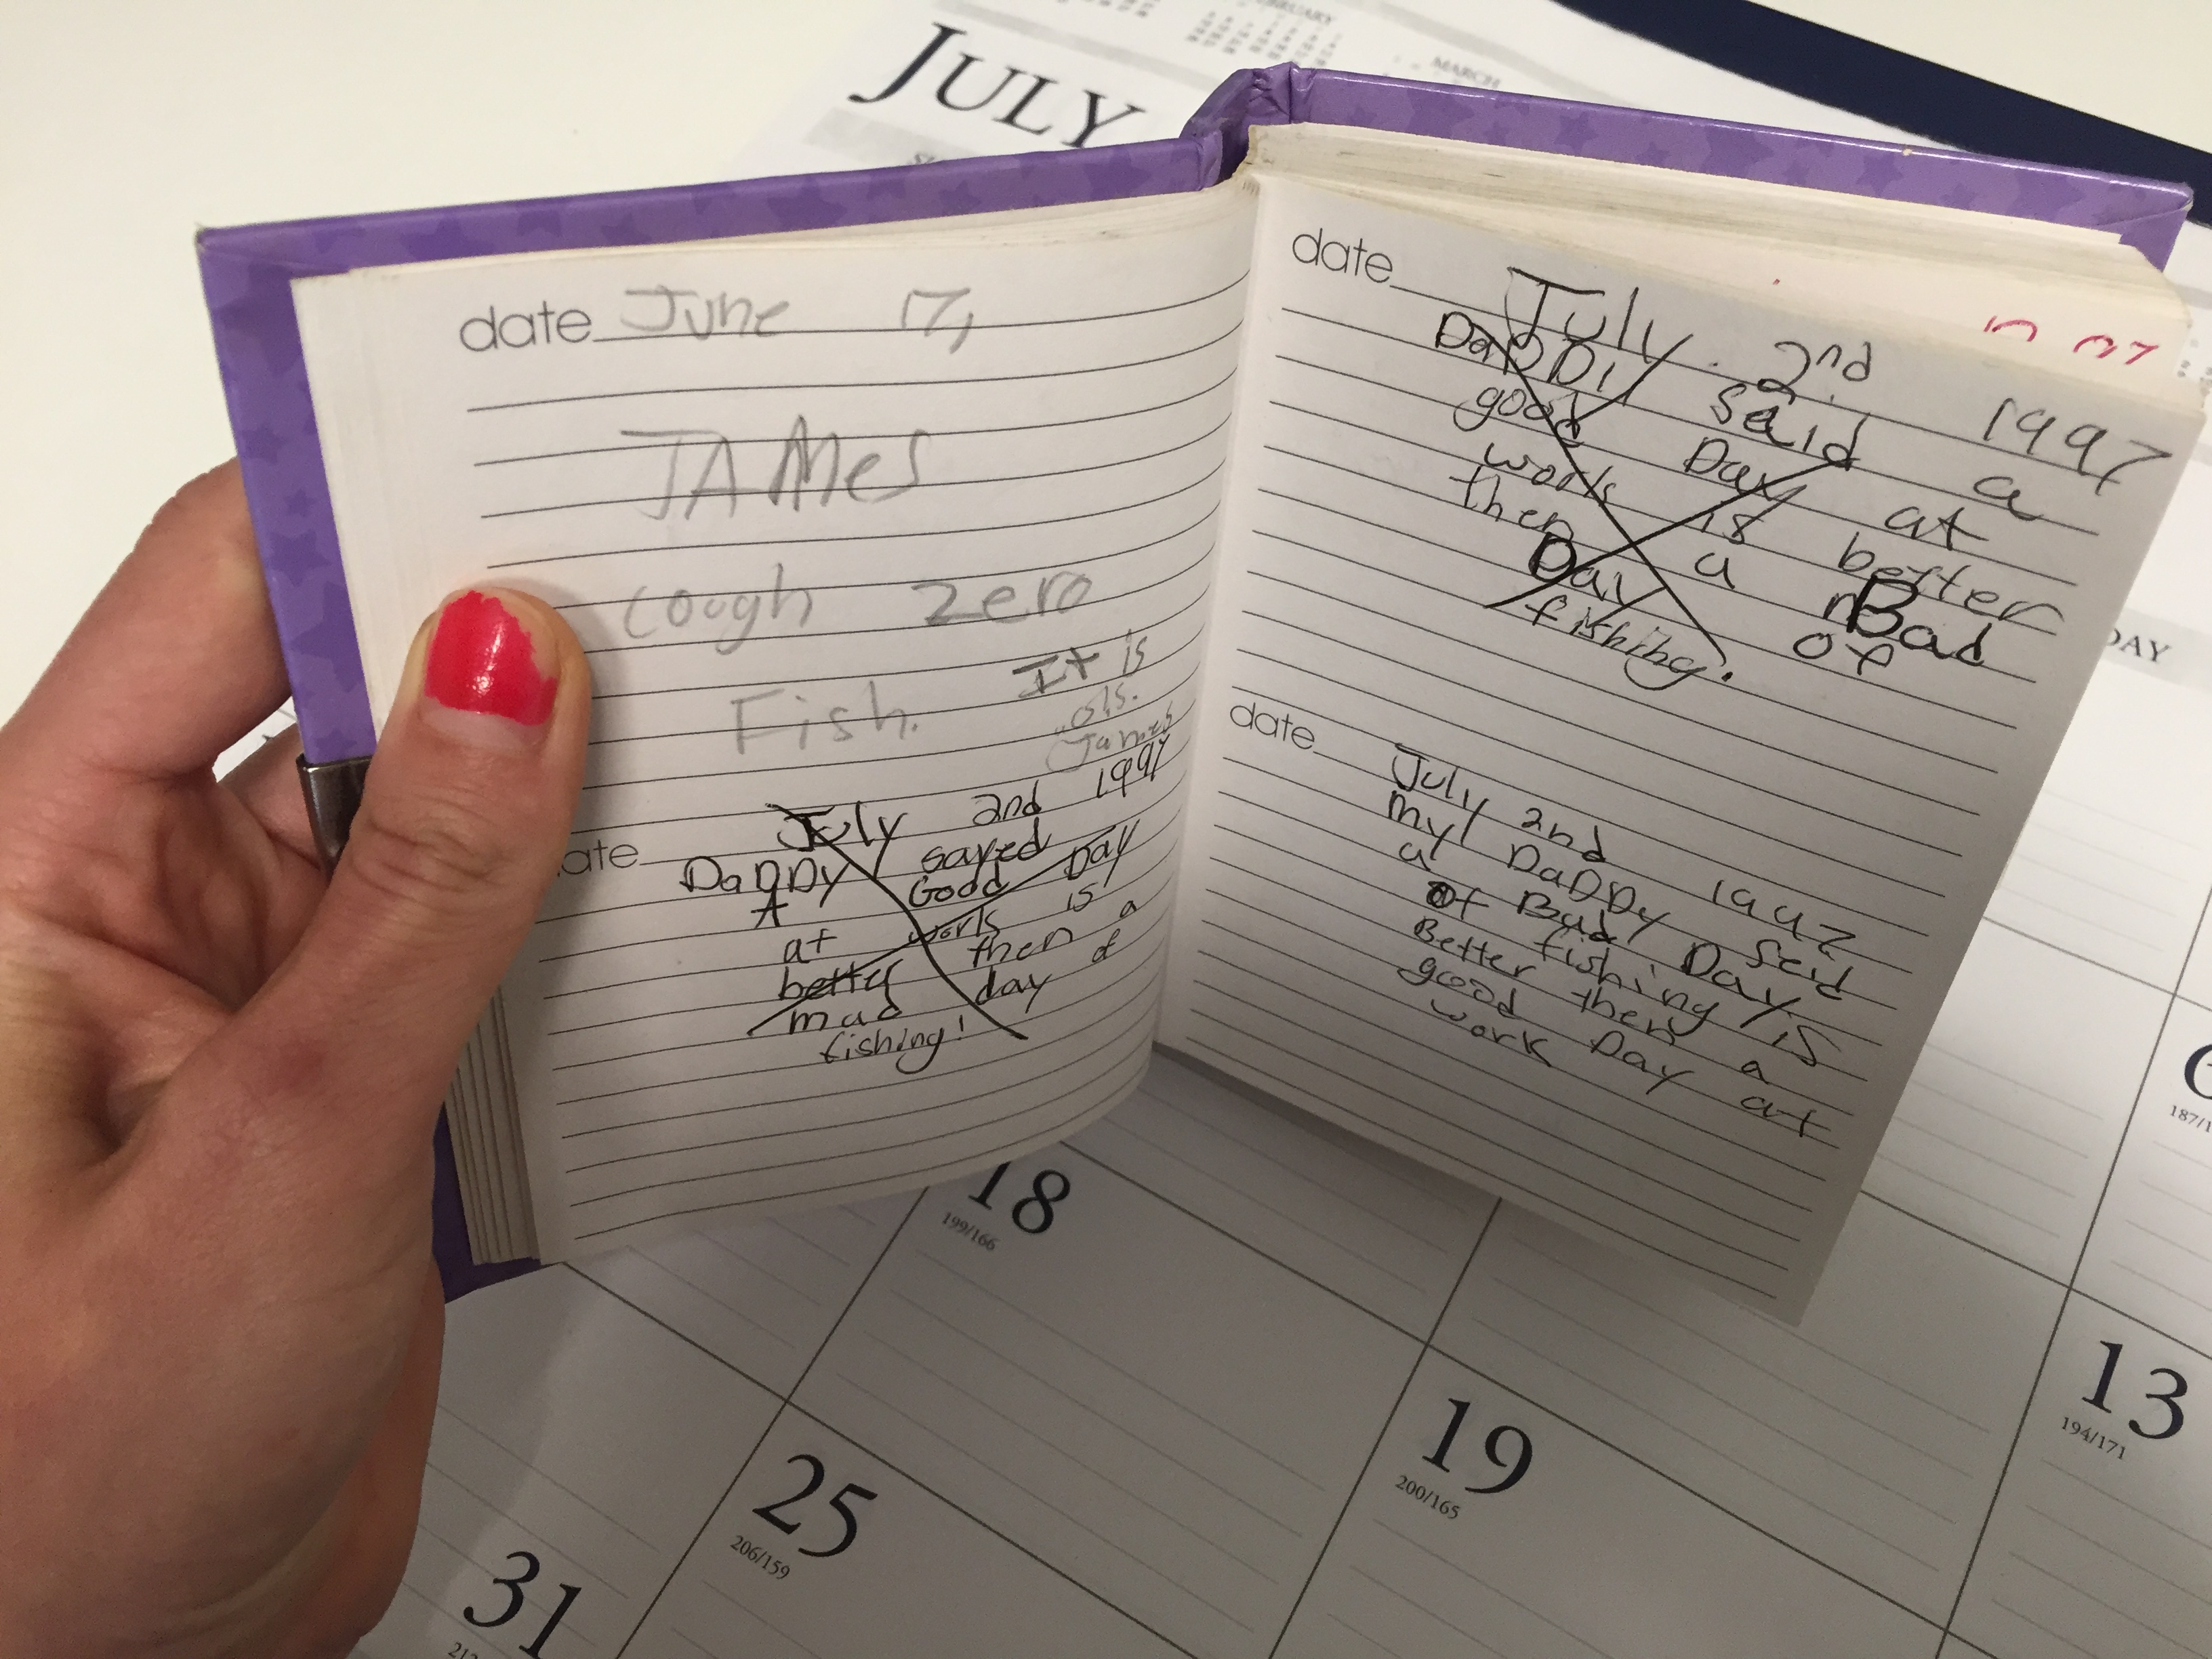 JULY
FEBRUARY
MARCH
date June 17,
JAMes
cough zero
Fish. It is
James
July 2nd 1997
DaDDy sayed
A Good Day
at work is
better then a
mad day of
fishing!
date July 2nd 1997
DaDDy said a
good Day at
work is better
then a Bad
Day of
fishing.
date July 2nd 1997
My DaDDy Seid
a Bad Day
of fishing is
Better then a
good Day at
work
DAY
6
187/1
18
199/166
13
194/171
19
200/165
25
206/159
31
212